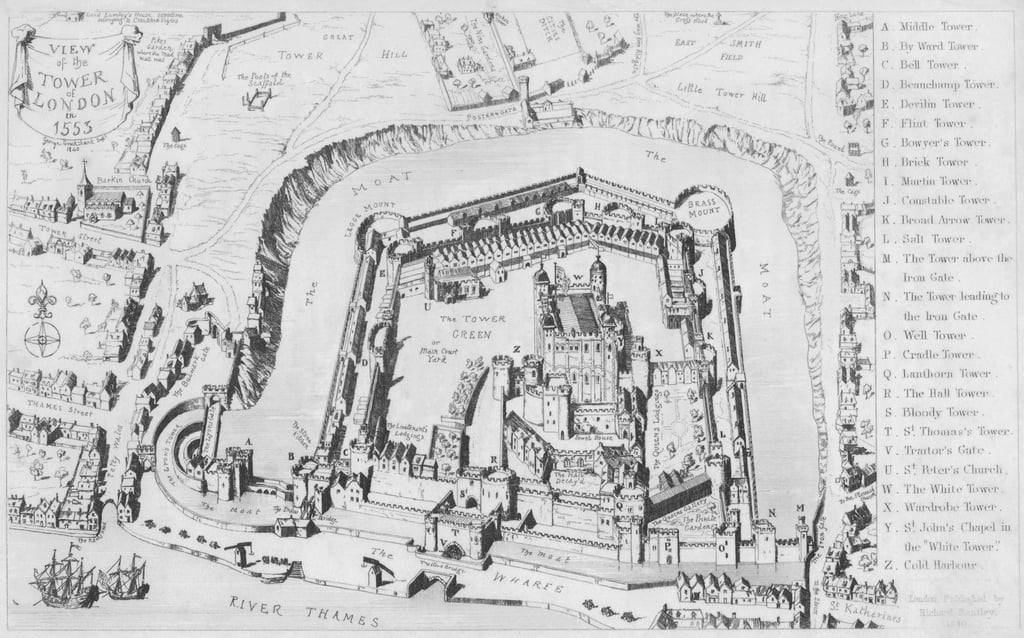 VIEW
of the
TOWER
of
LONDON
in
1553
George Cruikshank
1840
Lord Lumley's House
GREAT
TOWER HILL
The Posts of the
Scaffold
EAST SMITH
FIELD
Little Tower Hill
POSTERN GATE
The Cage
Barkin Church
TOWER Street
THAMES Street
Petty Wales
The Bulwark Gate
Lion's Tower
THE MOAT
LEGGE MOUNT
BRASS
MOUNT
The
MOAT
The Cage
The TOWER
GREEN
or
Main Court
Yard
The Lieutenant's
Lodgings
Jewel House
QUEEN'S Lodgings
The Hall
Decay'd
The Privie
Garden
The Moat
The Moat
The WHARFE
RIVER THAMES
Iron Gate
St Katherines
A B C D E F G H J K L M N O P Q R T U V W X Z
A. Middle Tower.
B. By Ward Tower.
C. Bell Tower.
D. Beauchamp Tower.
E. Devilin Tower.
F. Flint Tower.
G. Bowyer's Tower.
H. Brick Tower.
I. Martin Tower.
J. Constable Tower.
K. Broad Arrow Tower.
L. Salt Tower.
M. The Tower above the
Iron Gate.
N. The Tower leading to
the Iron Gate.
O. Well Tower.
P. Cradle Tower.
Q. Lanthorn Tower.
R. The Hall Tower.
S. Bloody Tower.
T. St. Thomas's Tower.
V. Traitor's Gate.
U. St. Peter's Church.
W. The White Tower.
X. Wardrobe Tower.
Y. St. John's Chapel in
the "White Tower."
Z. Cold Harbour.
London, Published by
Richard Bentley.
1840.